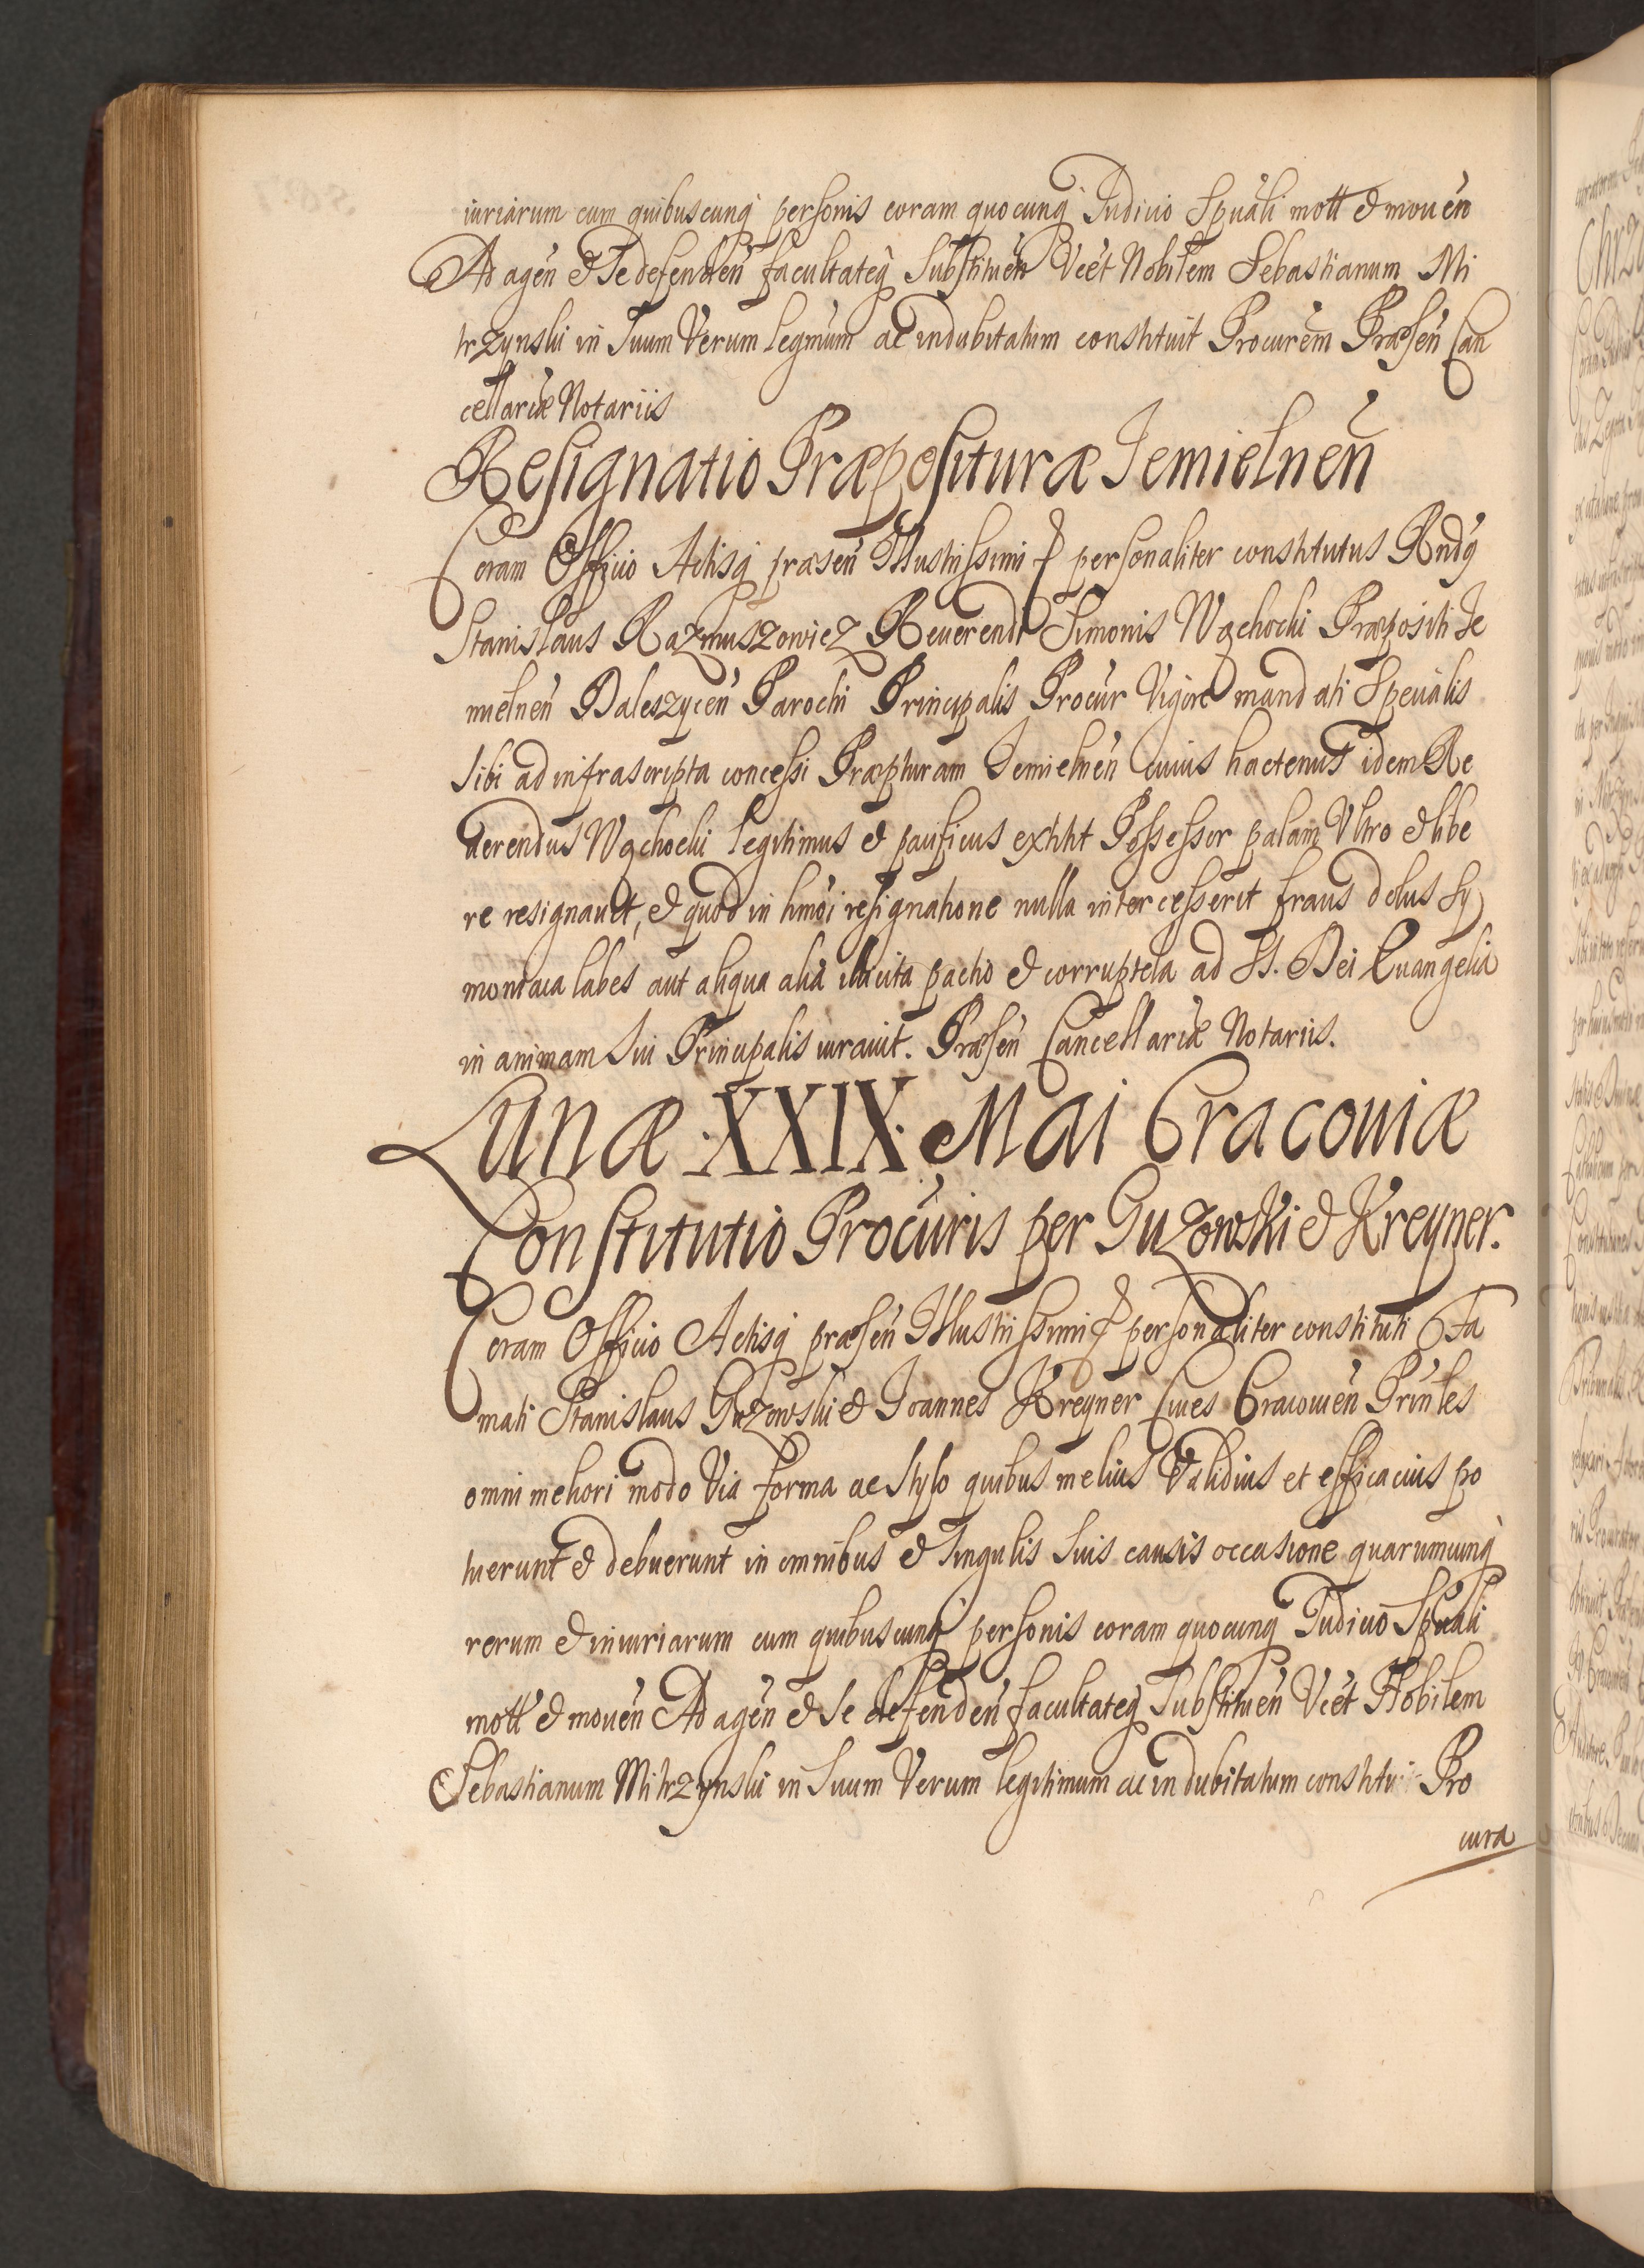 iuriarum cum quibuscunq personis coram quocunq Iudicio Spuali mott & mouen
Ad agen & Se defenden facultateq Substituen Vcet Nobilem Sebastianum Mi
trzynski in Suum Verum legmum ac indubitatum constituit Procurem Præsen Can
cellariæ Notariis
Resignatio Præposituræ Iemielnen
Coram Officio Actisq præsen Illustrissimi personaliter constitutus Rndq
Stanislaus Razmuszowicz Reuerendi Simonis Wąchocki Præpositi Ie
mielnen Daleszycen Parochi Principalis Procur Vigore mandati Specialis
Sibi ad infrascripta concessi Præpturam Iemielnen cuius hactenus idem Re
uerendus Wąchocki legitimus & pacificus extitit Possessor palam Vltro & libe
re resignauit, & quod in hmoi resignatione nulla intercesserit fraus dolus Sy
moniaca labes aut aliqua alia illicita pactio & corruptela ad St. Dei Euangelia
in animam Sui Principalis iurauit. Præsen Cancellariæ Notariis.
Lunæ XXIX Mai Cracouiæ
Constitutio Procuris per Guzowski & Kreyner.
Coram Officio Actisq præsen Illustrissimi personaliter constituti Fa
mati Stanislaus Guzowski & Ioannes Kreyner Ciues Cracouien Prinles
omni meliori modo Via forma ac Stylo quibus melius Validius et efficacius po
tuerunt & debuerunt in omnibus & Singulis Suis causis occasione quarumcunq
rerum & iniuriarum cum quibuscunq personis coram quocunq Iudicio Spuali
mott & mouen Ad agen & Se defenden facultateq Substituen Vcet Nobilem
Sebastianum Mitrzynski in Suum Verum legitimum ac indubitatum Pro
cura